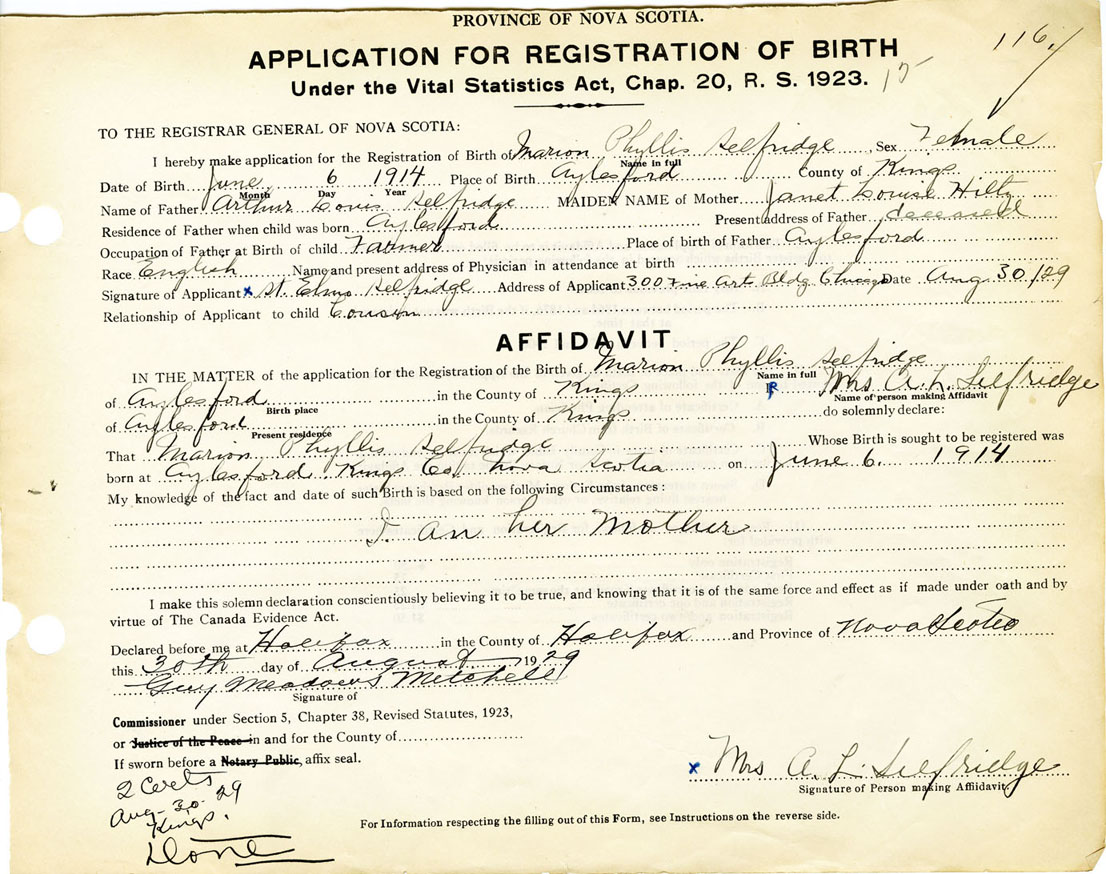 PROVINCE OF NOVA SCOTIA.
116.
APPLICATION FOR REGISTRATION OF BIRTH
Under the Vital Statistics Act, Chap. 20, R. S. 1923.
15
TO THE REGISTRAR GENERAL OF NOVA SCOTIA:
I hereby make application for the Registration of Birth of Marion Phyllis Selfridge, Sex Female
Name in full
Date of Birth June 6 1914 Place of Birth Aylesford County of Kings
Month Day Year
Name of Father Arthur Louis Selfridge MAIDEN NAME of Mother Janet Louise Hiltz
Residence of Father when child was born Aylesford Present address of Father deceased
Occupation of Father at Birth of child Farmer Place of birth of Father Aylesford
Race English Name and present address of Physician in attendance at birth
Signature of Applicant x St. Elmo Selfridge Address of Applicant 300 Fine Art Bldg Chicago Date Aug 30/29
Relationship of Applicant to child Cousin
AFFIDAVIT
IN THE MATTER of the application for the Registration of the Birth of Marion Phyllis Selfridge
Name in full
of Aylesford in the County of Kings Mrs A. L. Selfridge
Birth place
Name of person making Affidavit
of Aylesford in the County of Kings do solemnly declare:
Present residence
That Marion Phyllis Selfridge Whose Birth is sought to be registered was
born at Aylesford Kings Co, Nova Scotia on June 6. 1914
My knowledge of the fact and date of such Birth is based on the following Circumstances:
I an her Mother
I make this solemn declaration conscientiously believing it to be true, and knowing that it is of the same force and effect as if made under oath and by
virtue of The Canada Evidence Act.
Declared before me at Halifax in the County of Halifax and Province of Nova Scotia
this 30th day of August 1929
Guy Meadows Mitchell
Signature of
Commissioner under Section 5, Chapter 38, Revised Statutes, 1923,
or Justice of the Peace in and for the County of
If sworn before a Notary Public, affix seal.
x Mrs A. L. Selfridge
Signature of Person making Affiidavit
2 Certs
Aug-30-29
Kings.
Done
For Information respecting the filling out of this Form, see Instructions on the reverse side.